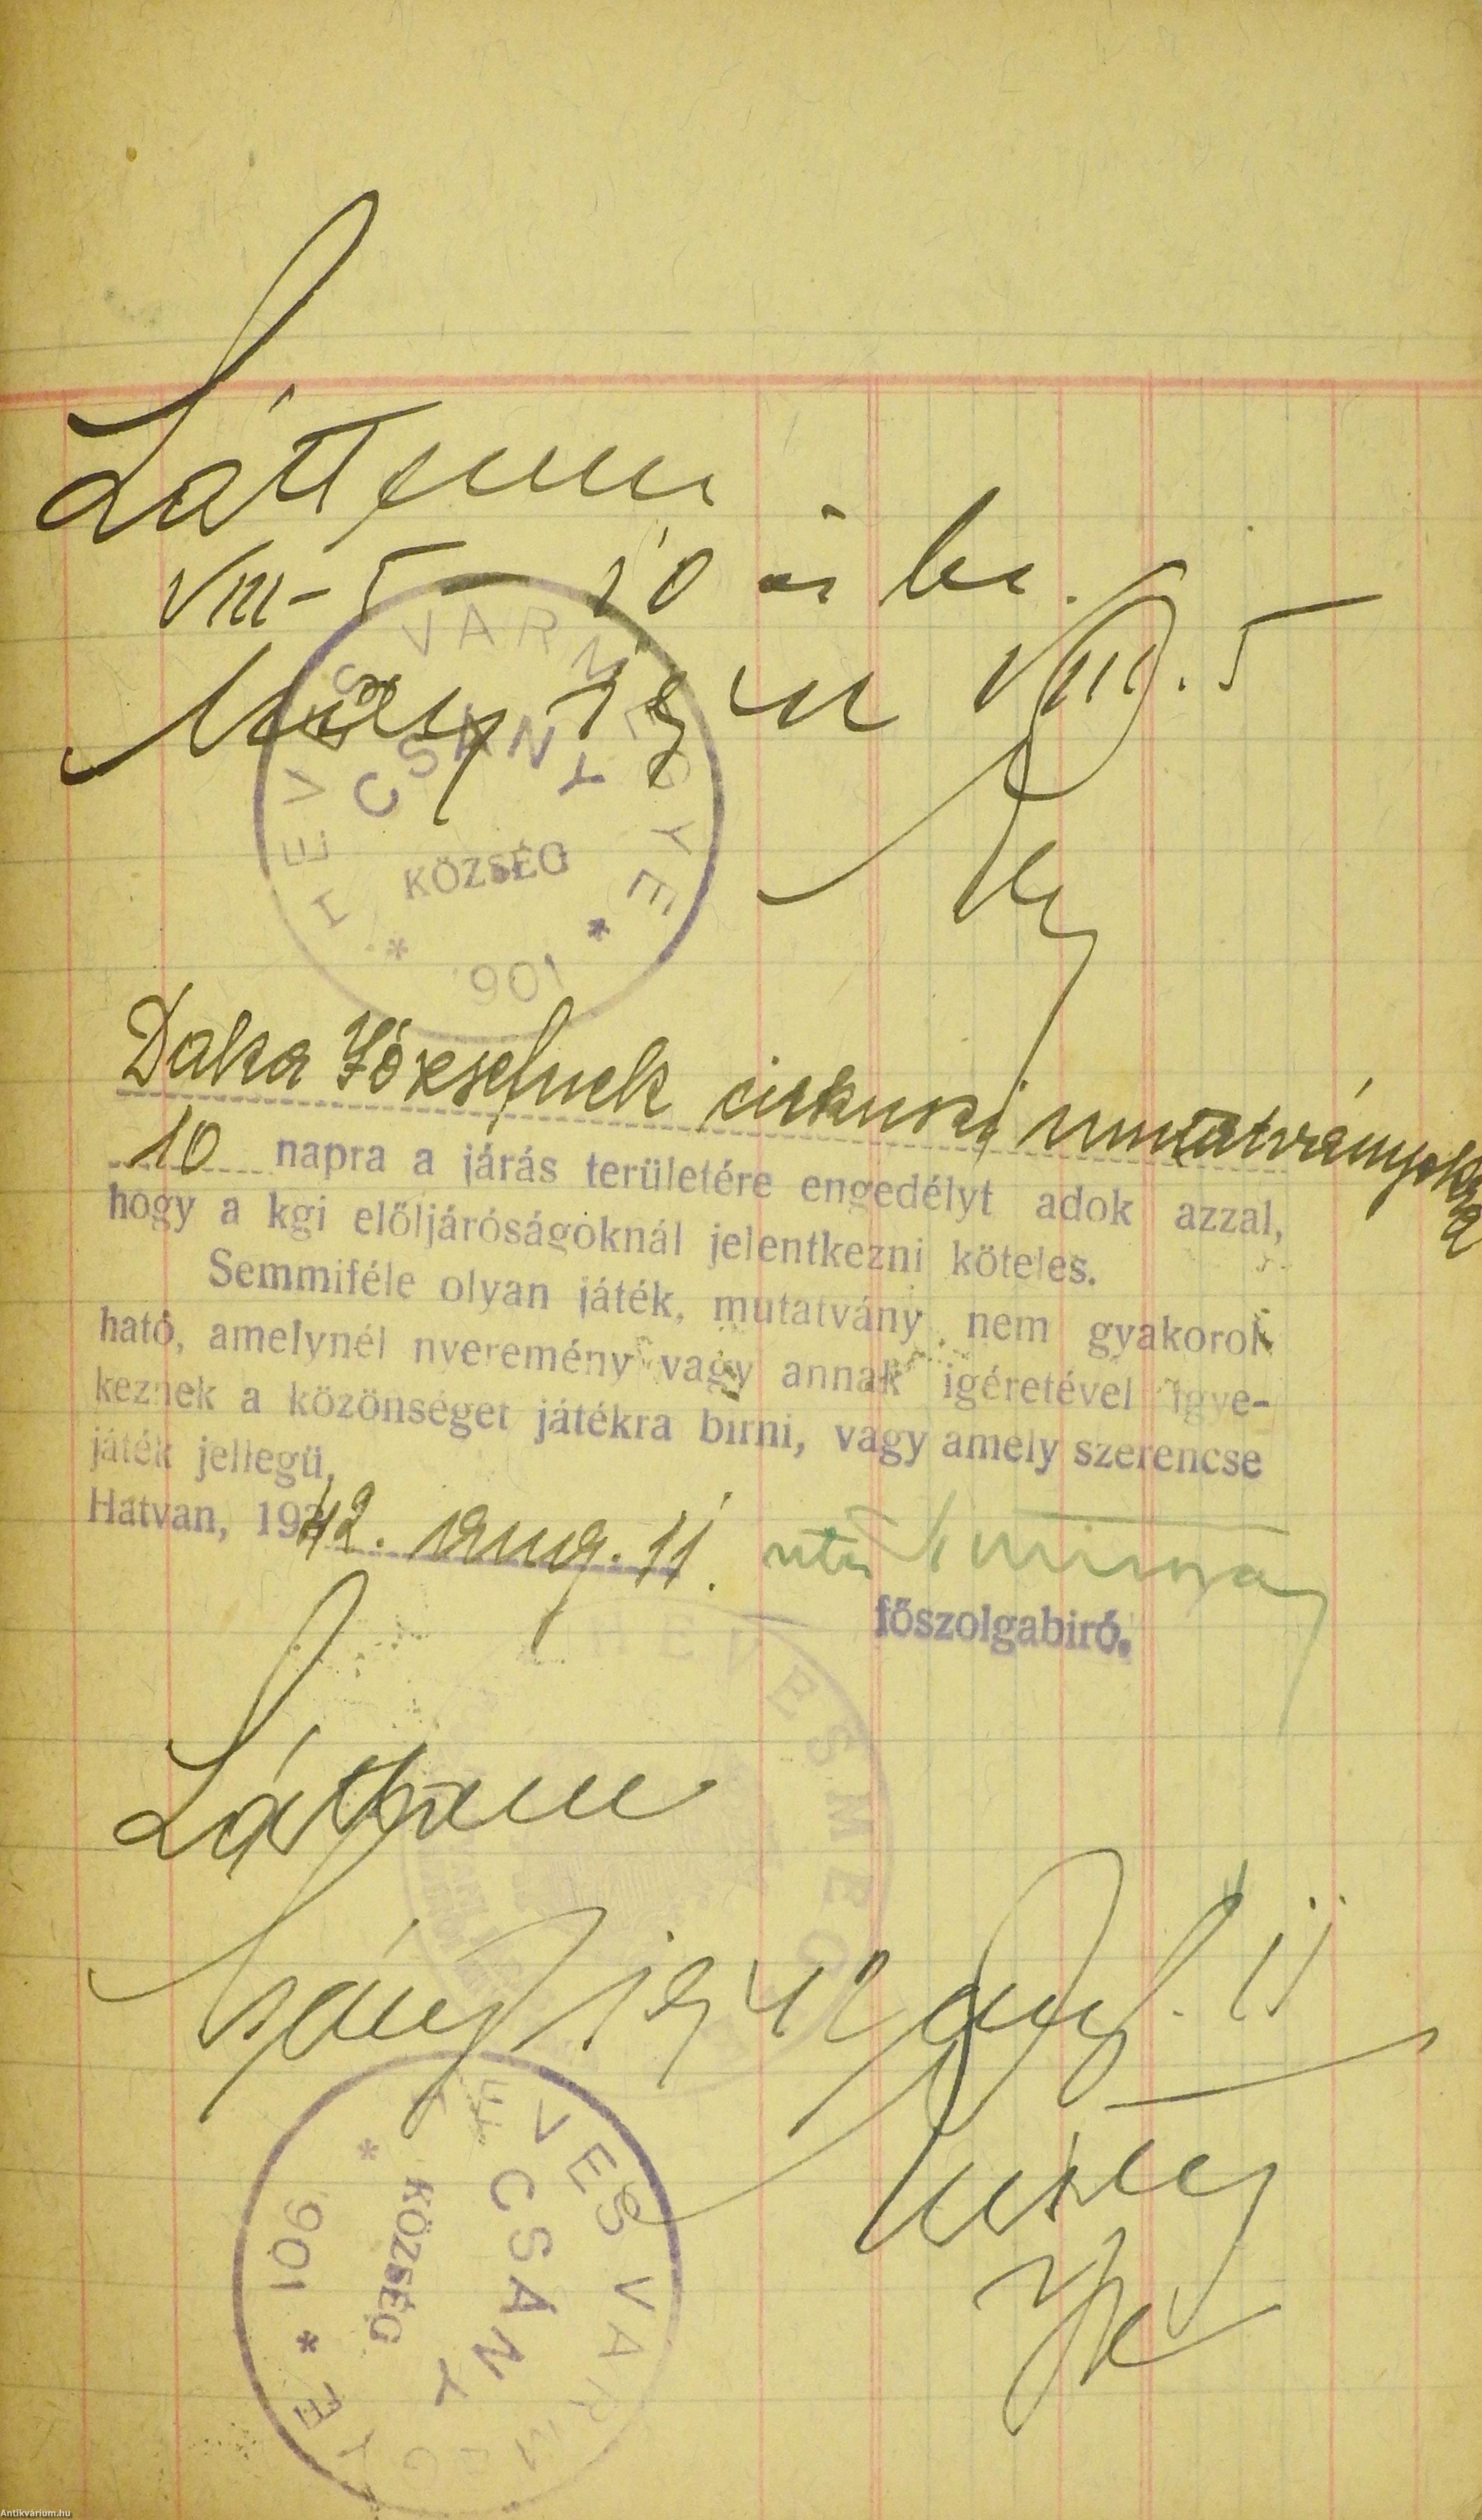 Láttam
VIII-5 10 ó bc.
Csány 1942 VIII. 5
HEVES VÁRMEGYE
CSÁNY
KÖZSÉG
* 901 *
Daka Józsefnek cirkuszi mutatványokra
10 napra a járás területére engedélyt adok azzal,
hogy a kgi előljáróságoknál jelentkezni köteles.
Semmiféle olyan játék, mutatvány nem gyakorol
ható, amelynél nyeremény vagy annak igéretével igye-
keznek a közönséget játékra birni, vagy amely szerencse
játék jellegü.
Hatvan, 1942. aug. 11.
főszolgabiró.
HEVES MEG
Láttam
Csány 1942 aug. 11
HEVES VÁRMEGYE
CSÁNY
KÖZSÉG
* 901 *
Antikvárium.hu